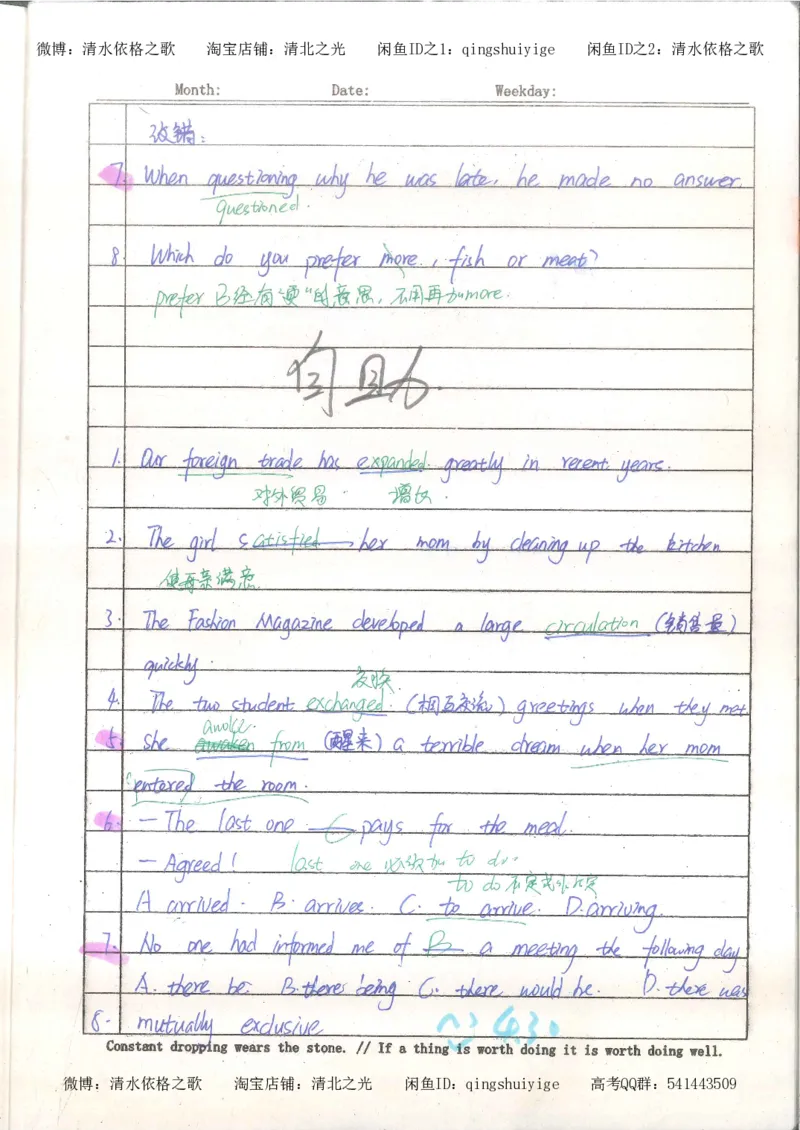 微博：清水依格之歌 淘宝店铺：清北之光 闲鱼ID之1：qingshuiyige 闲鱼ID之2：清水依格之歌
Month: Date: Weekday:
改错：
7. When questioning why he was late, he made no answer.
questioned.
8. Which do you prefer more, fish or meat?
prefer 已经有"更"的意思，不用再加more.
自助.
1. Our foreign trade has expanded greatly in recent years.
对外贸易 增长.
2. The girl satisfied her mom by cleaning up the kitchen
使母亲满意
3. The Fashion Magazine developed a large circulation (销售量)
quickly.
交换
4. The two student exchanged (相互交流) greetings when they met
awoke.
5. She awaken from (醒来) a terrible dream when her mom
entered the room.
6. — The last one C pays for the meal.
— Agreed! last one 必须加 to do.
to do 不定式作后定
A. arrived. B. arrives. C. to arrive. D. arriving.
7. No one had informed me of B a meeting the following day
A. there be. B. there being C. there would be. D. there was
8. mutually exclusive
4.30
Constant dropping wears the stone. // If a thing is worth doing it is worth doing well.
微博：清水依格之歌 淘宝店铺：清北之光 闲鱼ID：qingshuiyige 高考QQ群：541443509